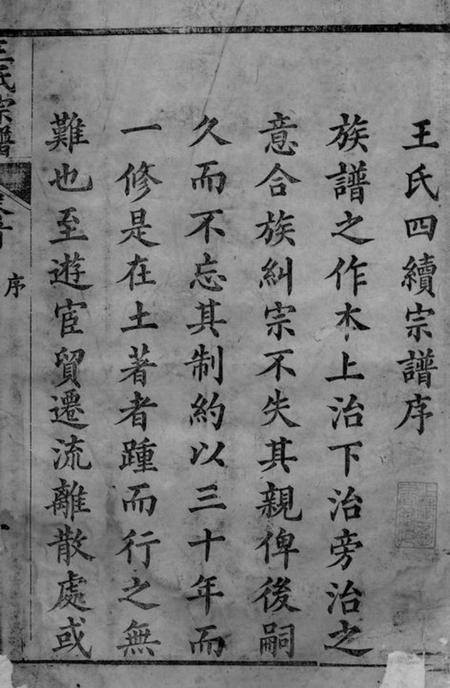 王氏四續宗譜序
族譜之作本上治下治旁治之
意合族糾宗不失其親俾後嗣
久而不忘其制約以三十年而
一修是在土著者踵而行之無
難也至遊宦貿遷流離散處或
王氏宗譜
序